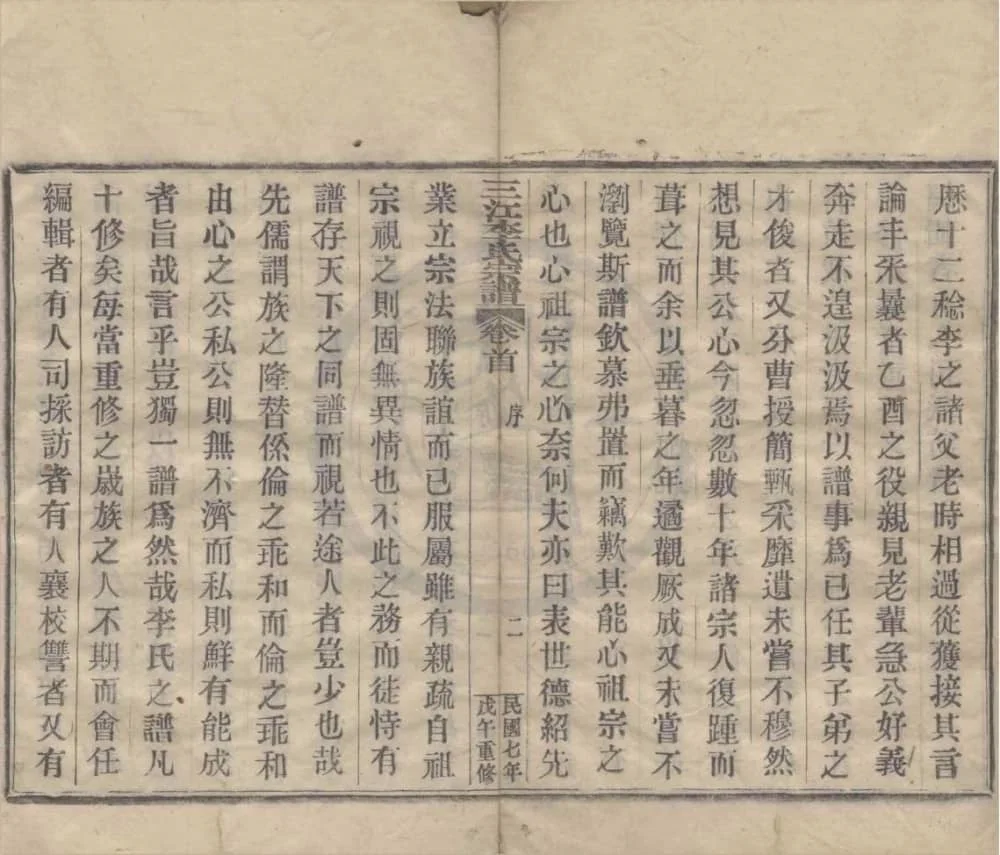 歷十二稔李之諸父老時相過從獲接其言
論丰采曩者乙酉之役親見老輩急公好義
奔走不遑汲汲焉以譜事爲已任其子弟之
才俊者又分曹授簡甄采靡遺未嘗不穆然
想見其公心今忽忽數十年諸宗人復踵而
葺之而余以垂暮之年遹觀厥成又未嘗不
瀏覽斯譜欽慕弗置而竊歎其能心祖宗之
心也心祖宗之心奈何夫亦曰表世德紹先
三江李氏宗譜 卷首 序 二 民國七年戊午重修
業立宗法聯族誼而已服屬雖有親疏自祖
宗視之則固無異情也不此之務而徒恃有
譜存天下之同譜而視若途人者豈少也哉
先儒謂族之隆替係倫之乖和而倫之乖和
由心之公私公則無不濟而私則鮮有能成
者旨哉言乎豈獨一譜爲然哉李氏之譜凡
十修矣每當重修之歲族之人不期而會任
編輯者有人司採訪者有人襄校讐者又有